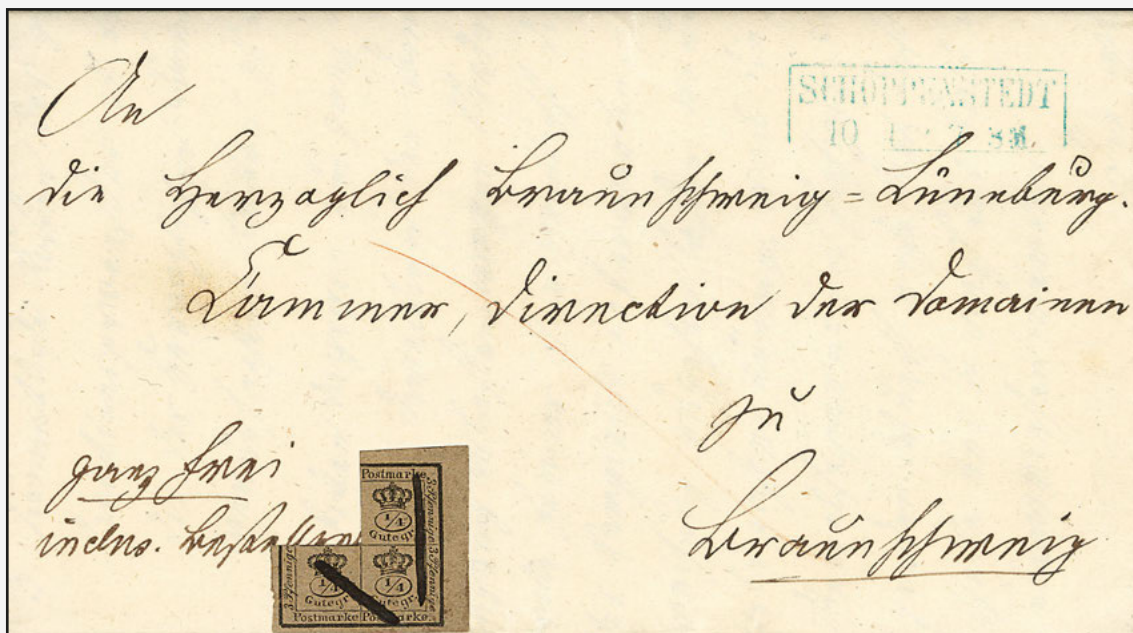 SCHÖPPENSTEDT
10
An
die Herzoglich Braunschweig=Lüneburg.
Cammer, Direction der Domainen
zu
Braunschweig
ganz frei
inclus. Bestellgeld
Postmarke
3 Pfennige 3 Pfennige
1/4
Gutegr.
3 Pfennige
1/4
Gutegr.
1/4
Gutegr.
Postmarke Postmarke